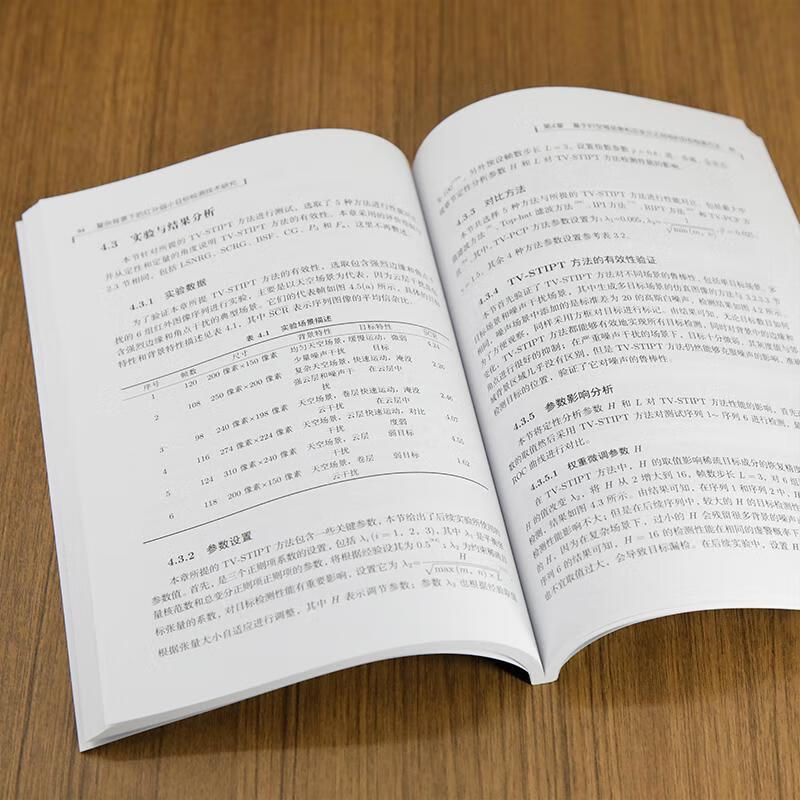 94 复杂背景下的红外弱小目标检测技术研究
4.3 实验与结果分析
本节针对所提的 TV-STIPT 方法进行测试,选取了 5 种方法进行性能对
并从定性和定量的角度说明 TV-STIPT 方法的有效性。本章采用的评价指标
2.3 节相同,包括 LSNRG、SCRG、BSF、CG、Pd 和 Fa,这里不再赘述。
4.3.1 实验数据
为了验证本章所提 TV-STIPT 方法的有效性,选取包含强烈边缘和角点
扰的 6 组红外图像序列进行实验,主要是以天空场景为代表,因为云层
含强烈边缘和角点干扰的典型场景。它们的代表帧如图 4.5(a) 所示,具体的目标
特性和背景特性描述见表 4.1,其中 SCR 表示序列图像的平均信杂比。
表 4.1 实验场景描述
序号 帧数 尺寸 背景特性 目标特性 SCR
1 120 200 像素×150 像素 均匀天空场景,少量噪声干扰 缓慢运动,微弱目标 4.21
2 108 250 像素×200 像素 复杂天空场景,强云层和噪声干扰 快速运动,淹没在云层中 2.26
3 98 240 像素×198 像素 天空场景,卷层云干扰 快速运动,淹没在云层中 2.46
4 116 274 像素×224 像素 天空场景,云层干扰 快速运动,对比度弱 4.07
5 124 310 像素×240 像素 天空场景,云层干扰 弱目标 4.55
6 118 200 像素×150 像素 天空场景,卷层云干扰 弱目标 1.62
4.3.2 参数设置
本章所提的 TV-STIPT 方法包含一些关键参数,本节给出了后续实验所使用的
参数值。首先,是三个正则项系数的设置,包括 λi(i = 1, 2, 3),其中 λ1 是平衡
量核范数和总变分正则项正则项的参数,将根据经验设其为 0.5
标张量的系数,对目标检测性能有重要影响,设置它为 λ2= H/√max(m, n)×L
根据张量大小自适应进行调整,其中 H 表示调节参数;参数 λ3 也根据经验
第4章
另外预设帧数步长 L = 3,设置
章节定性分析参数 H 和 L 对 TV-STIPT 方法检测性能的影响。
4.3.3 对比方法
本节共选择 5 种方法与所提的 TV-STIPT 方法进行性能对比,包括最大中
值滤波方法、Top-hat 滤波方法、IPI 方法、RIPT 方法和 TV-PCP 方
其中,TV-PCP 方法参数设置为:λ1=0.005,
=1.5,其余 4 种方法参数设置参考表 3.2。
4.3.4 TV-STIPT 方法的有效性验证
本节首先验证了 TV-STIPT 方法对不同场景的鲁棒性,包括单目标场景、多
目标场景和噪声干扰场景,其中生成多目标场景的仿真图像的方法与 3.2.2.3 节
相同,噪声场景中添加的是标准差为 20 的高斯白噪声,检测结果如图 4.2 所示,
为了方便观察,同样采用方框对目标进行标记。由结果可知,无论目标数目如何
变化,TV-STIPT 方法都能够有效地实现所有目标检测,同时对背景中的边缘和
角点进行很好的抑制;在严重噪声干扰的场景下,目标十分微弱,其灰度值与邻
域背景区域几乎没有区别,但是 TV-STIPT 方法仍然能够克服噪声的影响,准确
检测目标的位置,验证了它对噪声的鲁棒性。
4.3.5 参数影响分析
本节将定性分析参数 H 和 L 对 TV-STIPT 方法性能的影响,首先
数的取值然后采用 TV-STIPT 方法对测试序列 1~ 序列 6 进行检测,最
ROC 曲线进行对比。
4.3.5.1 权重微调参数 H
在 TV-STIPT 方法中,H 的取值影响稀疏目标成分的恢复精度
H 的值改变 λ2,将 H 从 2 增大到 16,帧数步长 L = 3,对 6 组
检测,结果如图 4.3 所示。由结果可知,在序列 1 和序列 2 中,H
检测性能影响不大;但是在后续序列中,较大的 H 的目标检测性
的 H,因为在复杂场景下,过小的 H 会残留很多背景的噪声
序列 6 的结果可知,H = 16 的检测性能在相同的虚警概率下
也不宜取值过大,会导致目标漏检。在后续实验中,设置 H